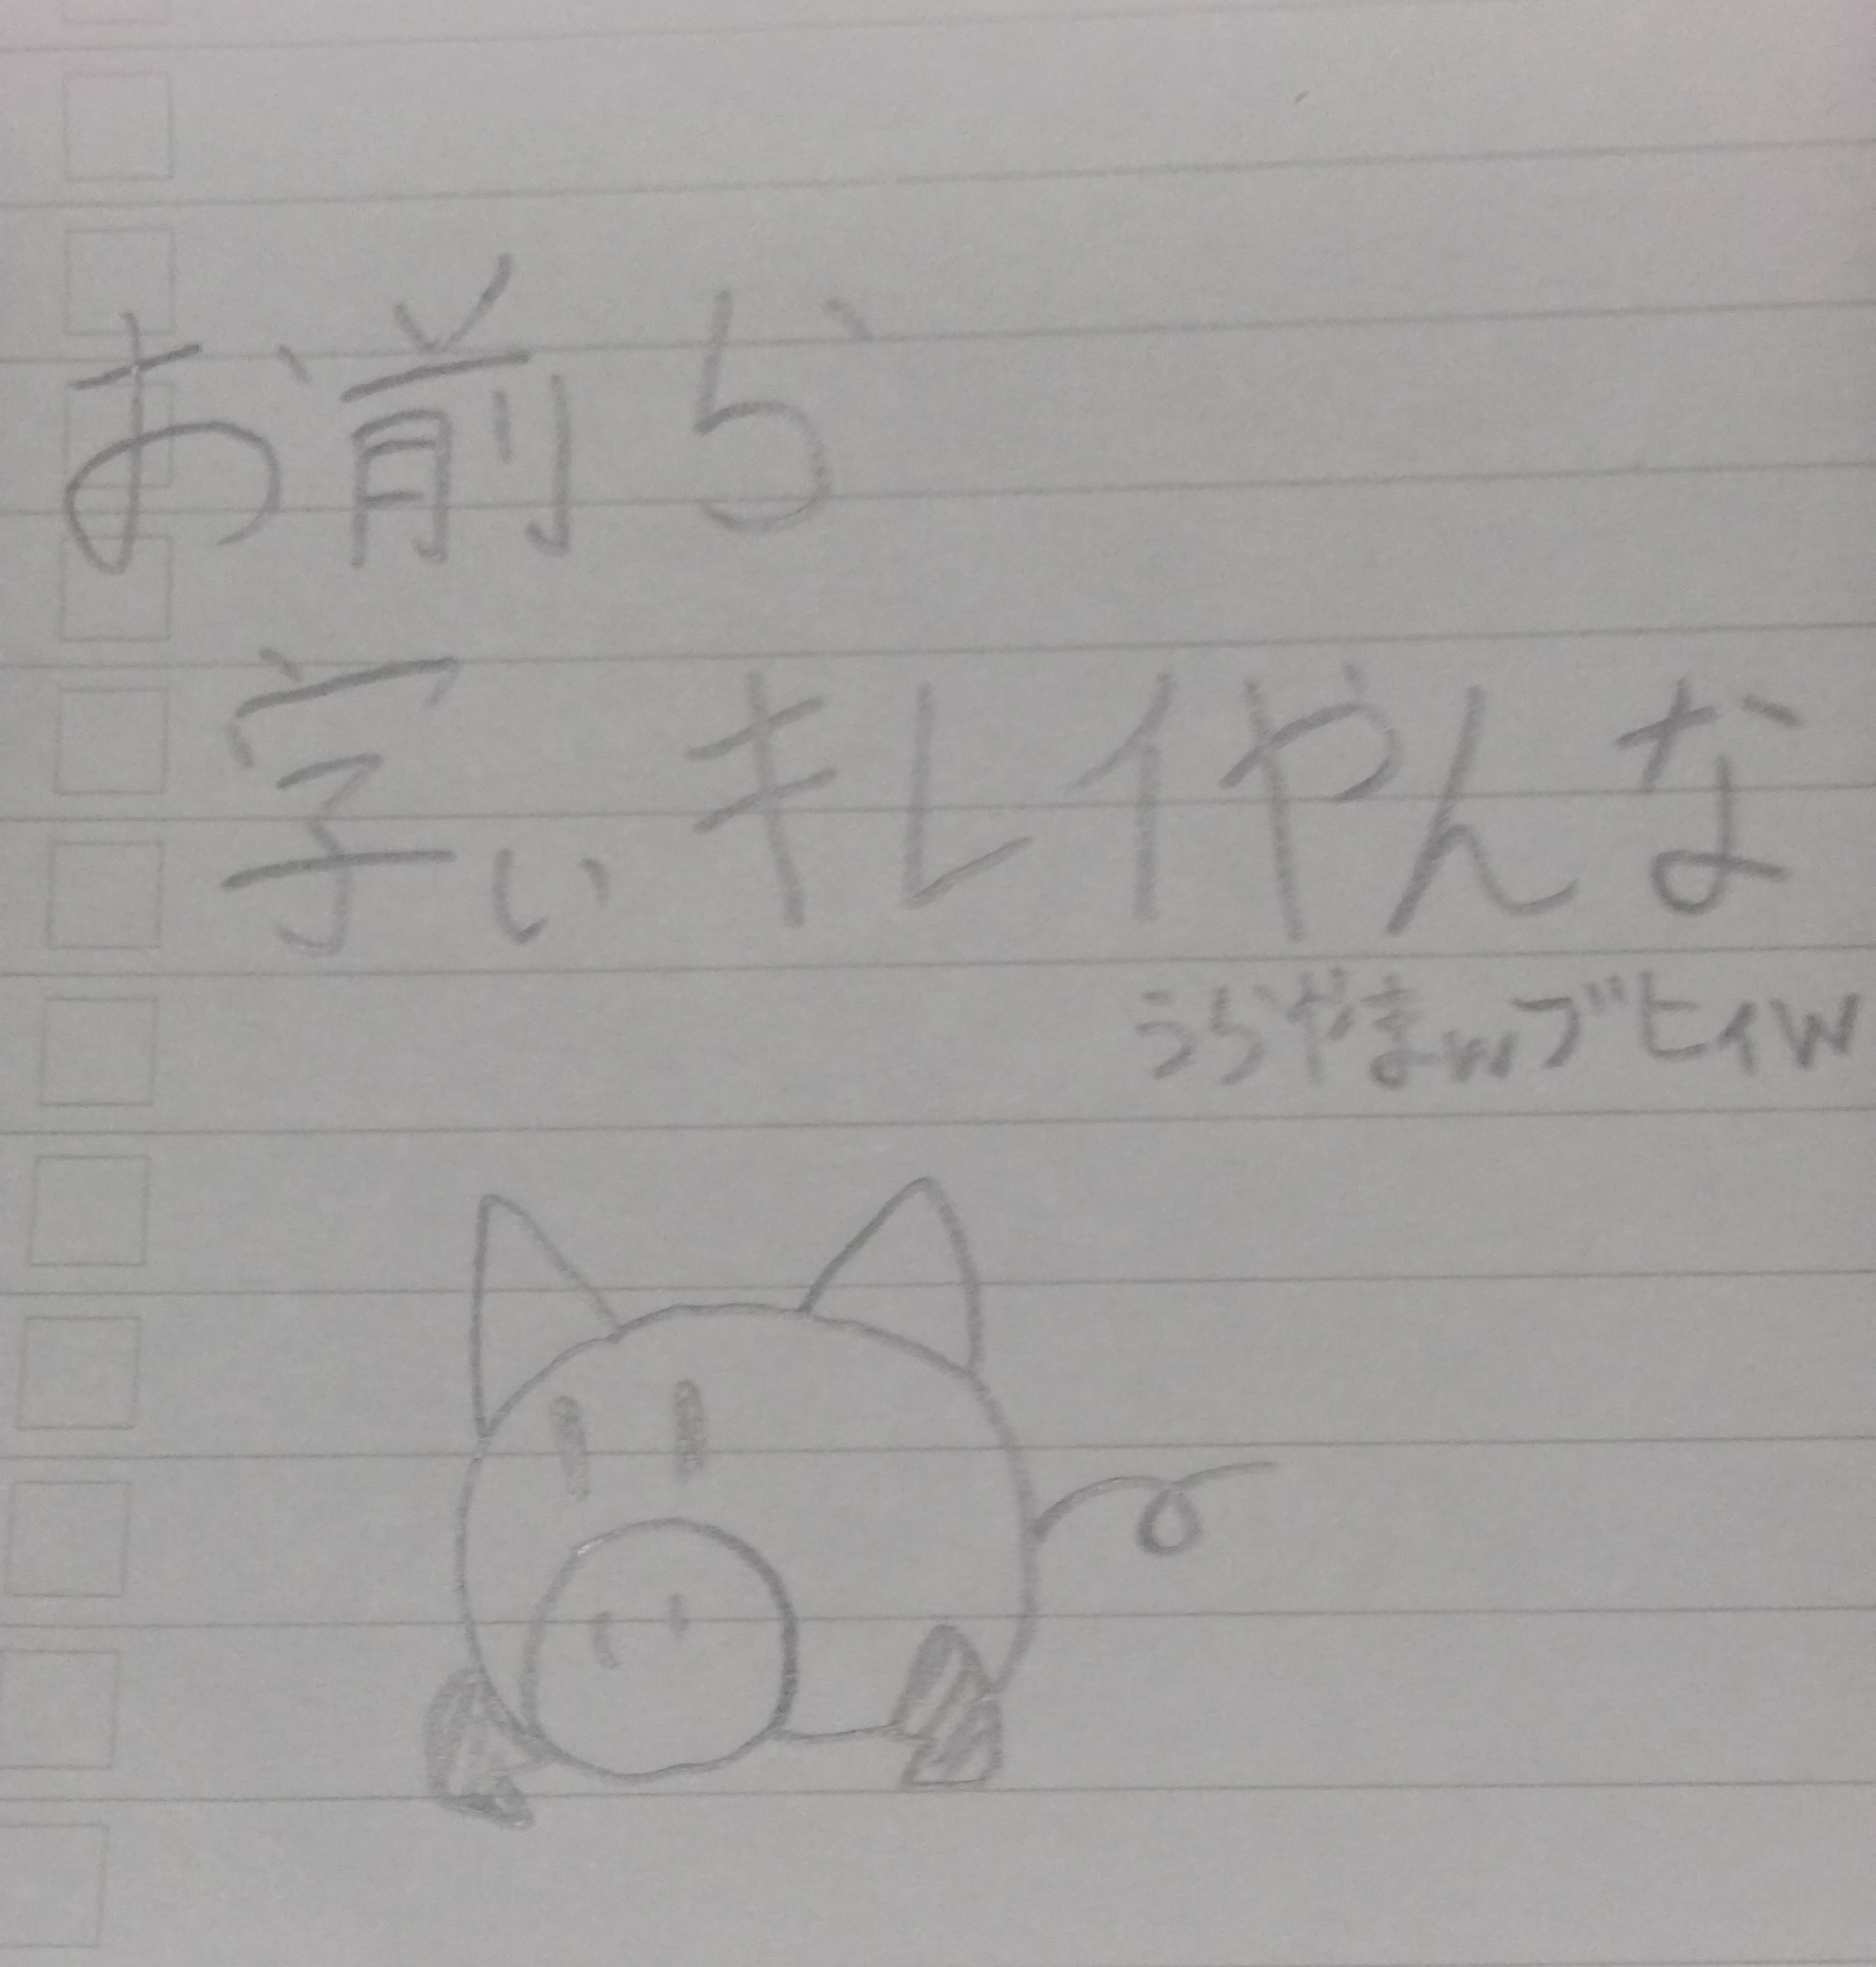 お前ら
字ぃキレイやんな
うらやまwwブヒィw